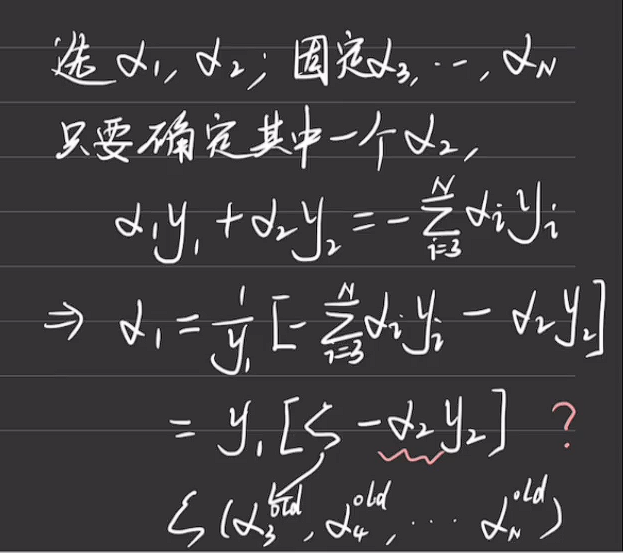 选 α₁, α₂; 固定α₃, ⋯, α_N
只要确定其中一个 α₂,
α₁y₁ + α₂y₂ = -∑_{i=3}^{N} αᵢyᵢ
⇒ α₁ = 1/y₁ [-∑_{i=3}^{N} αᵢyᵢ - α₂y₂]
= y₁[ζ - α₂y₂] ?
ζ(α₃^{old}, α₄^{old}, ⋯ α_N^{old})